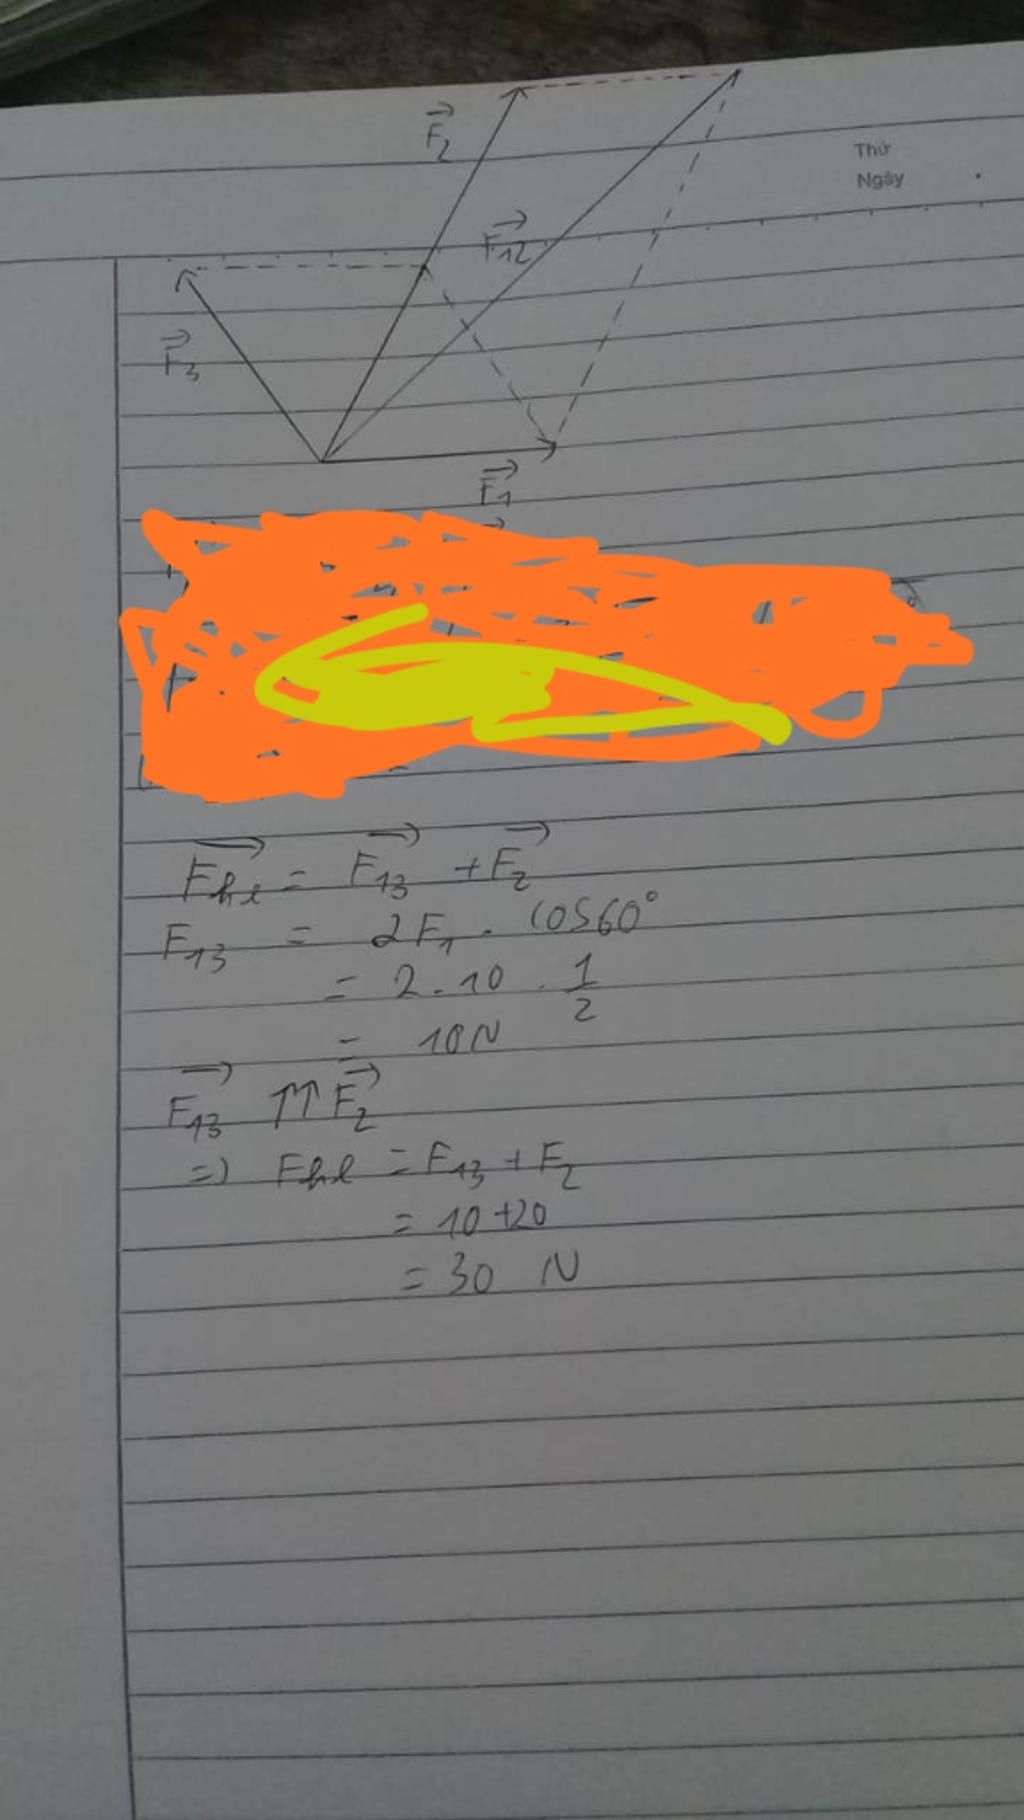 F₂
Thứ
Ngày
F₁₂
F₃
F₁
Fhl = F₁₃ + F₂
F₁₃ = 2F₁ . cos60°
= 2 . 10 . 1/2
= 10N
F₁₃ ↑↑ F₂
=> Fhl = F₁₃ + F₂
= 10 + 20
= 30 N